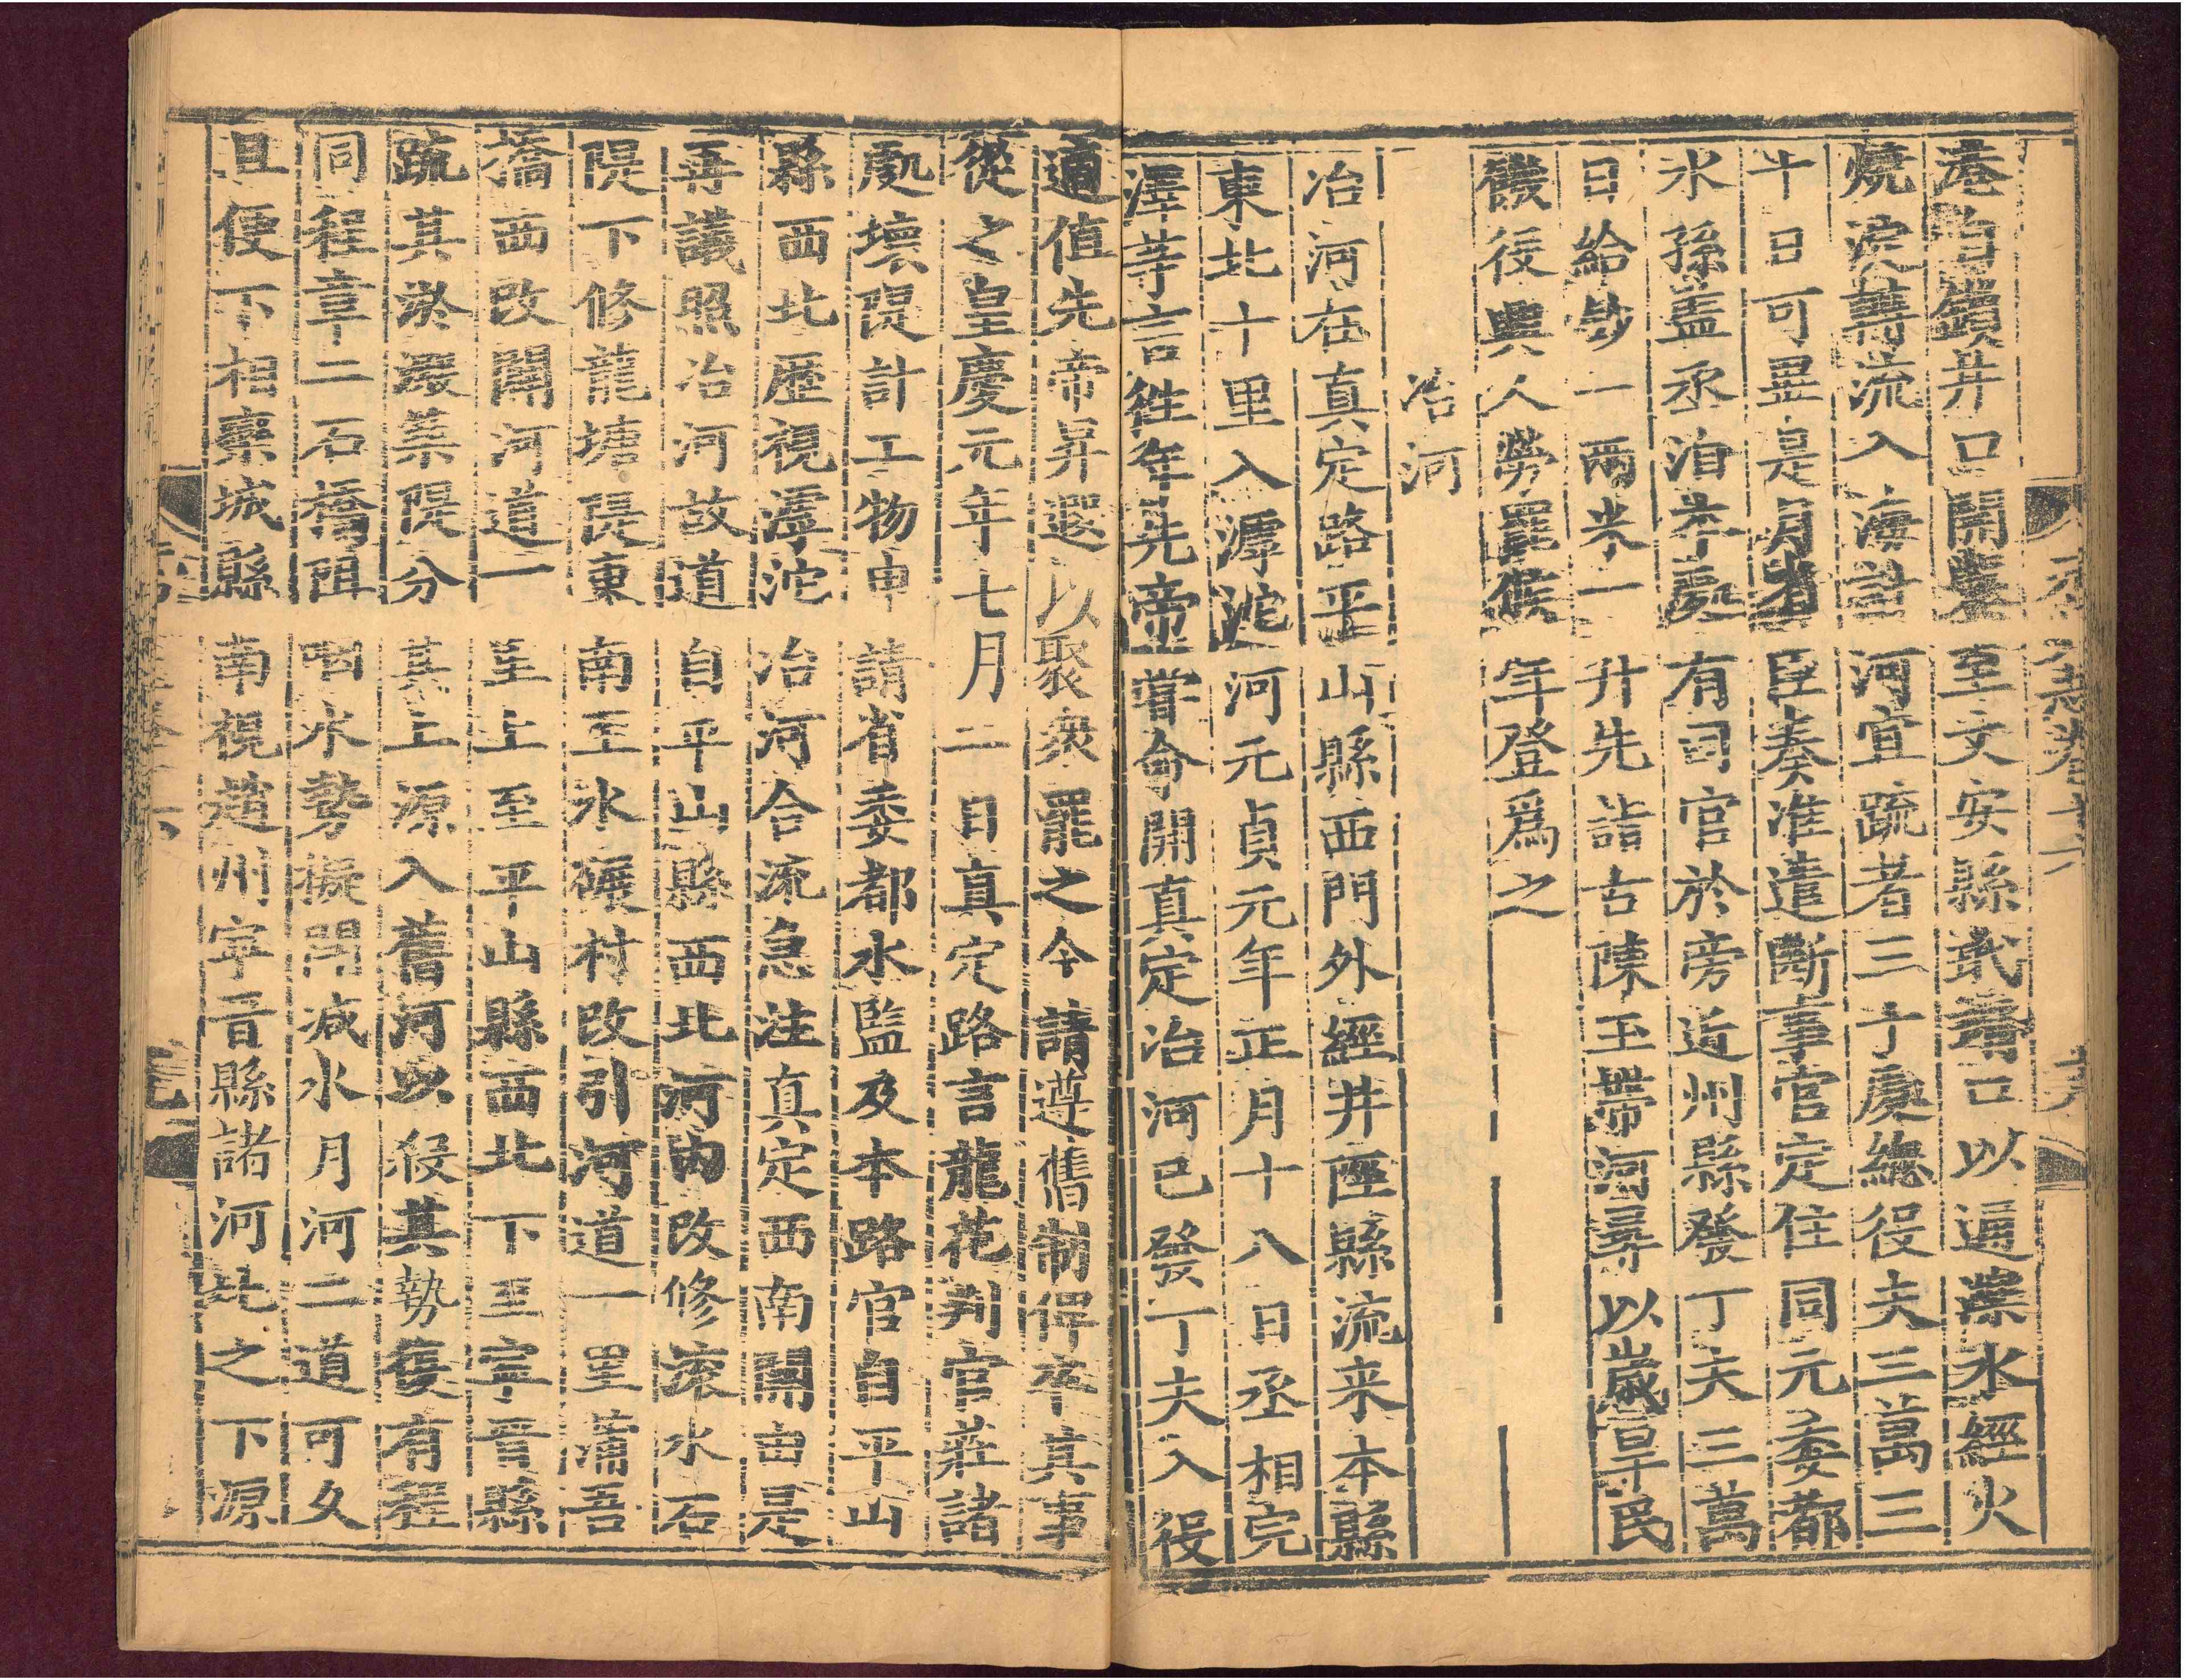 淹自鎖井口開鑿至文安縣玳瑁口以通澡水經火
燒淀轉流入海計河宜疏者三十處總役夫三萬三
十日可畢是月省臣奏准遣斷事官定住同元委都
水孫監丞洎本處有司官於旁近州縣發丁夫三萬
日給鈔一兩米一升先詣古陳玉帶河尋以歲旱民
饑役興人勞罷候年登爲之
冶河
冶河在真定路平山縣西門外經井陘縣流來本縣
東北十里入滹沱河元貞元年正月十八日丞相完
澤等言往年先帝嘗命開真定冶河已發丁夫入役
適值先帝昇遐以聚衆罷之今請遵舊制俾卒其事
從之皇慶元年七月二日真定路言龍花判官莊諸
處壞隄計工物申請省委都水監及本路官自平山
縣西北歷視滹沱冶河合流急注真定西南關由是
再議照冶河故道自平山縣西北河內改修滾水石
隄下修龍塘隄東南至水碾村改引河道一里蒲吾
橋西改闢河道一里上至平山縣西北下至寧晉縣
疏其淤澱築隄分其上源入舊河以殺其勢復有程
同程章二石橋阻咽水勢擬開減水月河二道可久
且便下相欒城縣南視趙州寧晉縣諸河北之下源